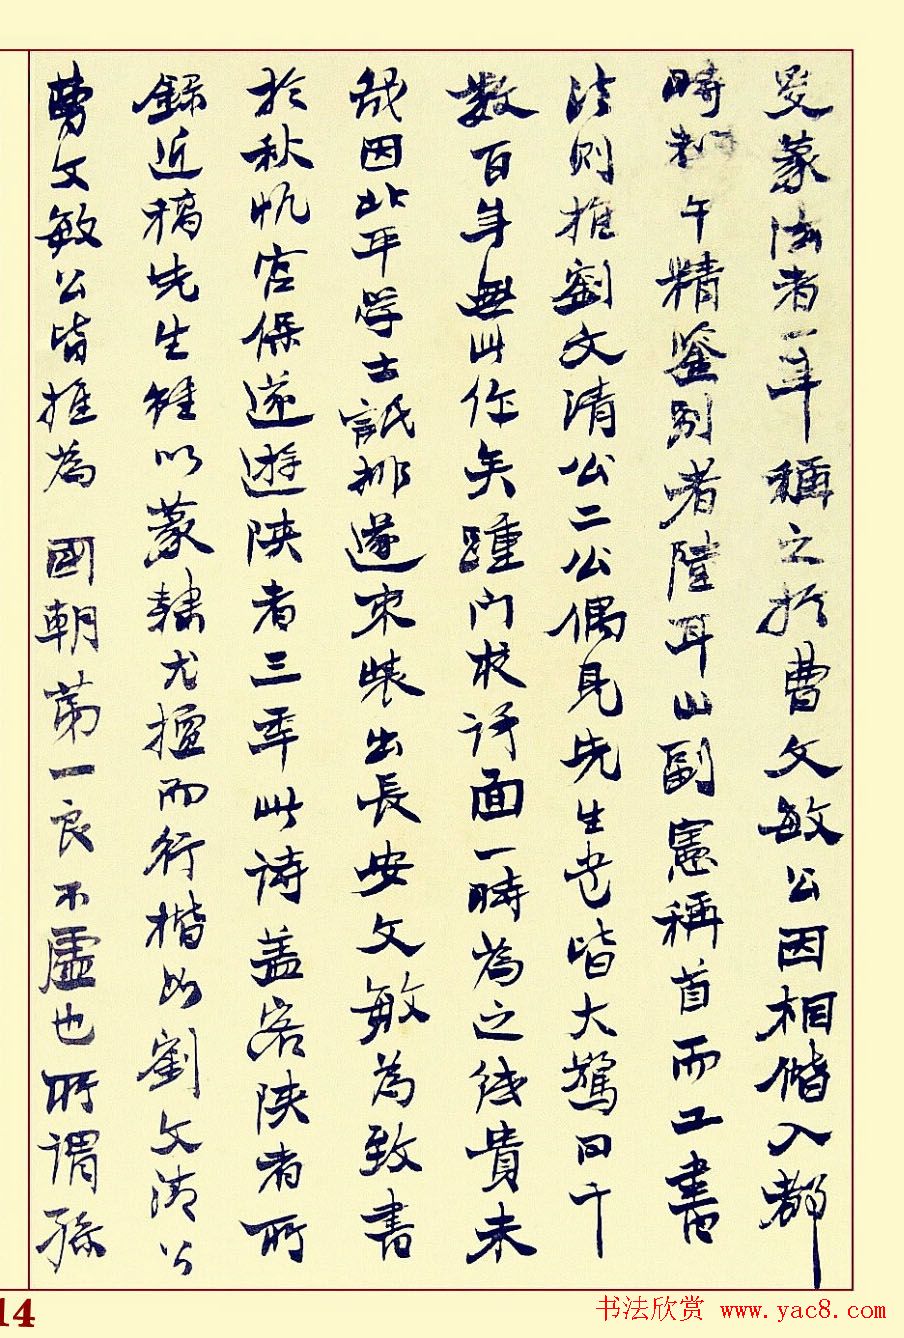 受篆法者一年稱之於曹文敏公因相偕入都
時都午精鑒別者陸耳山副憲稱首而工書
法則推劉文清公二公偶見先生書皆大驚曰千
數百年無此作矣踵門面一時為之紙貴未
幾因北平学士詆排遂束裝出長安文敏為致書
於秋帆宮保遂遊陝者三年此诗盖客陝者所
錄近稿先生雖以篆隸尤擅而行楷如劉文清公
曹文敏公皆推為 國朝第一良不虛也所謂孫
14
书法欣赏 www.yac8.com